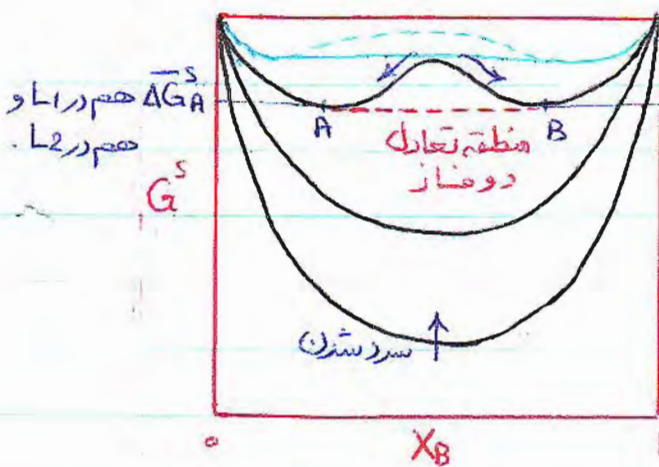 ΔG̅ᴬˢ هم در L1 و
هم در L2.
A
B
منطقه تعادل
دو فاز
Gˢ
سرد شدن
0
X_B